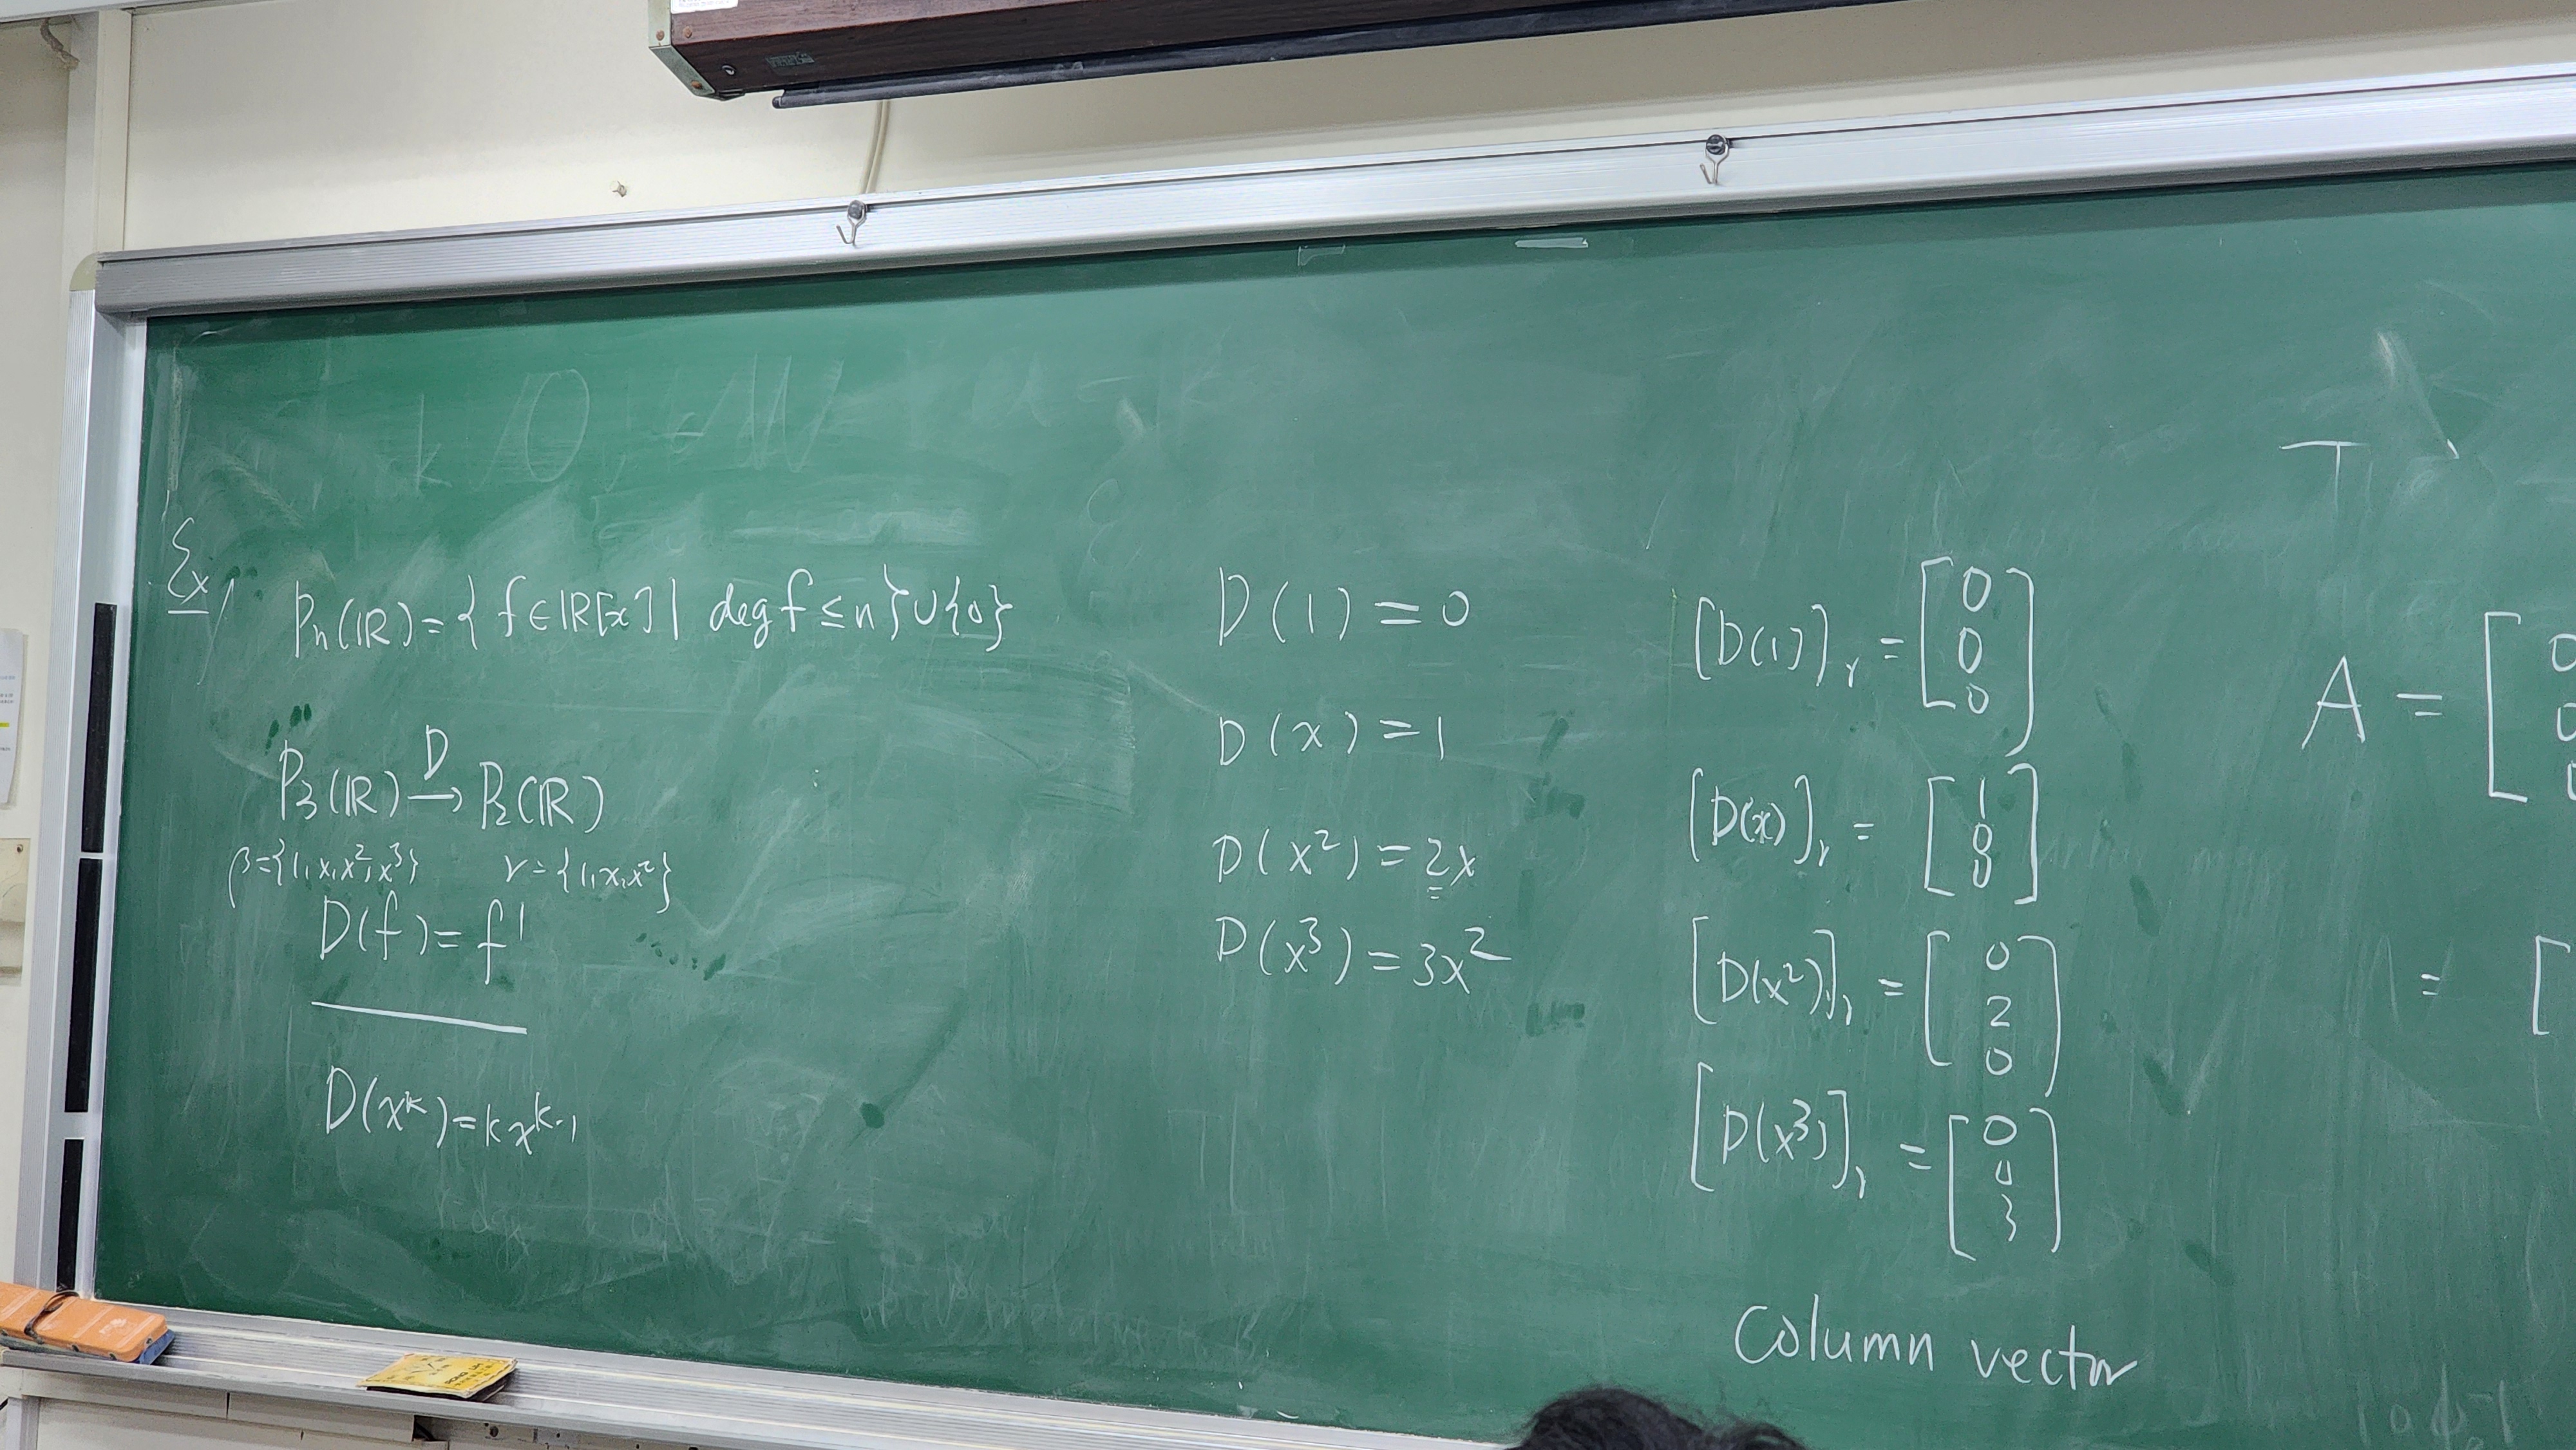 Ex/
Pn(ℝ) = { f∈ℝ[x] | deg f ≤ n } ∪ {0}
P₃(ℝ) —D→ P₂(ℝ)
β={1,x,x²,x³} γ={1,x,x²}
D(f) = f'
D(xᵏ) = k xᵏ⁻¹
D(1) = 0
D(x) = 1
D(x²) = 2x
D(x³) = 3x²
[D(1)]γ = [0
0
0]
[D(x)]γ = [1
0
0]
[D(x²)]γ = [0
2
0]
[D(x³)]γ = [0
0
3]
Column vector
A = [
= [